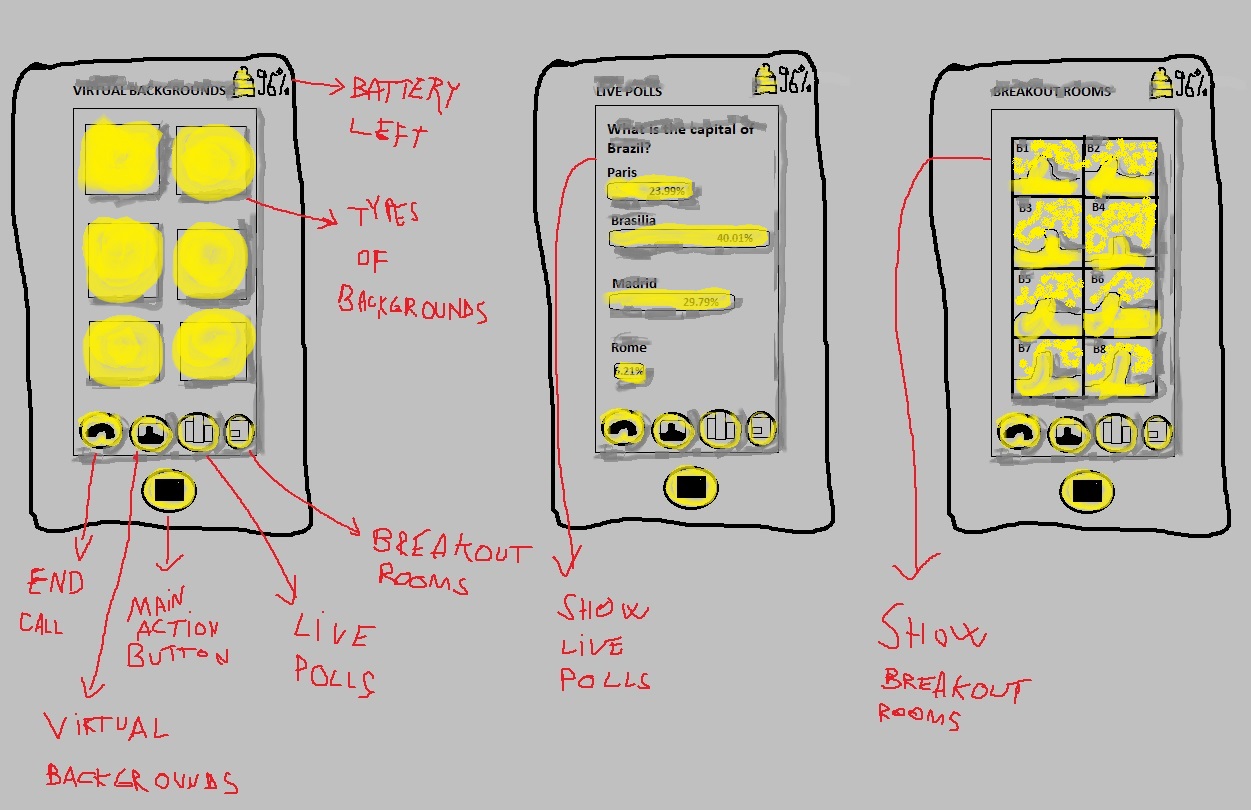 VIRTUAL BACKGROUNDS
96%
BATTERY
LEFT
TYPES
OF
BACKGROUNDS
END
CALL
VIRTUAL
BACKGROUNDS
MAIN
ACTION
BUTTON
LIVE
POLLS
BREAKOUT
ROOMS
LIVE POLLS
96%
What is the capital of
Brazil?
Paris
23.99%
Brasilia
40.01%
Madrid
29.79%
Rome
6.21%
SHOW
LIVE
POLLS
BREAKOUT ROOMS
96%
B1 B2
B3 B4
B5 B6
B7 B8
SHOW
BREAKOUT
ROOMS